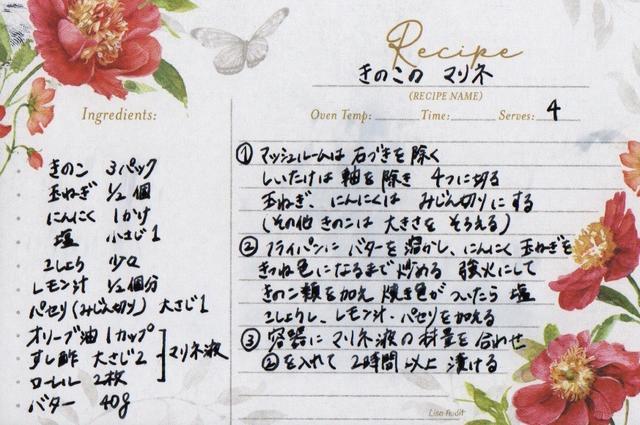 Recipe
きのこの マリネ
(RECIPE NAME)
Ingredients:
Oven Temp: Time: Serves: 4
きのこ 3パック
玉ねぎ 1/2個
にんにく 1かけ
塩 小さじ1
こしょう 少々
レモン汁 1/2個分
パセリ(みじん切り) 大さじ1
オリーブ油 1カップ
すし酢 大さじ2
ローレル 2枚
マリネ液
バター 40g
① マッシュルームは 石づきを 除く
しいたけは 軸を 除き 4つに切る
玉ねぎ、にんにくは みじん切りにする
(その他 きのこは 大きさを そろえる)
② フライパンに バターを 溶かし、にんにく 玉ねぎを
きつね色に なるまで 炒める 強火にして
きのこ類を加え 焼き色が ついたら 塩
こしょうし、レモン汁・パセリを加える
③ 容器に マリネ液の 材量を 合わせ
②を入れて 2時間 以上 漬ける
Lisa Audit